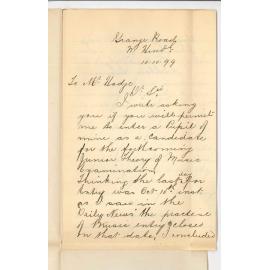 Grange Road
W. Hind
10.10.99
To Mr Hodge,
Dr Sir
I write asking
you if you will permit
me to enter a Pupil of
mine as a Candidate
for the forthcoming
Junior Theory of Music
Examination
Thinking the last day
Entry was Oct 10th inst.
as I saw in the
Daily News the practice
of Music entry closes
on that date, I concluded